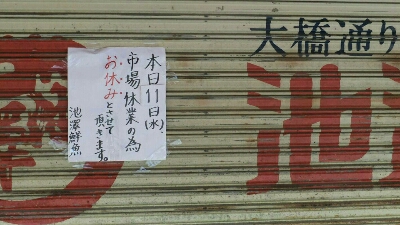 本日11日(水)
市場休業の為
お休みとさせて
頂きます。
池澤鮮魚
大橋通り
池